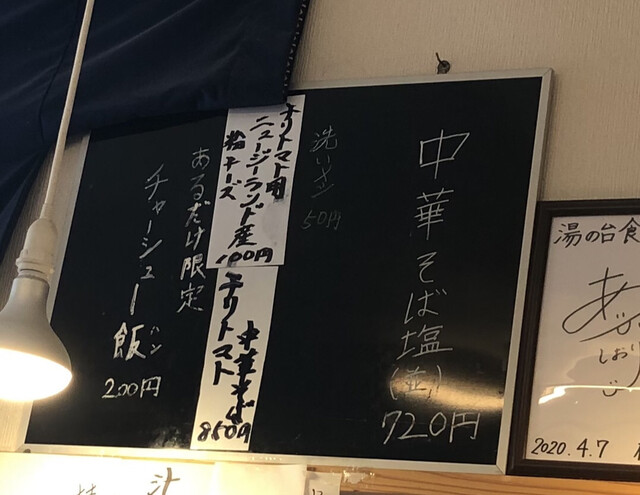 中華そば塩(並)
720円
洗いメン
50円
チリトマト用
ニュージーランド産
粉チーズ
100円
チリトマト
中華そば
860円
あるだけ限定
チャーシュー飯
200円
湯の台食
しおり
2020.4.7
汁